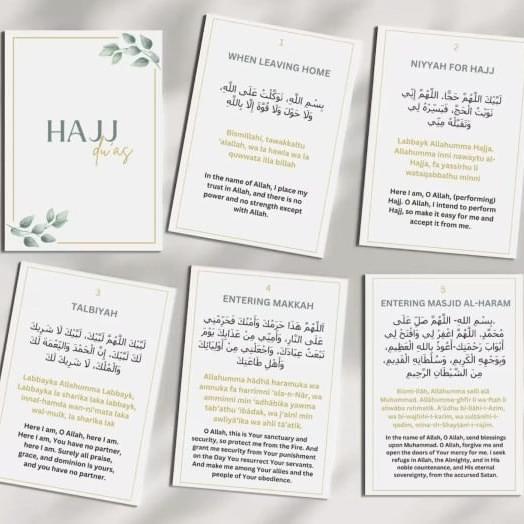 HAJJ
du'as
1
WHEN LEAVING HOME
بِسْمِ اللَّهِ، تَوَكَّلْتُ عَلَى اللَّهِ،
وَلَا حَوْلَ وَلَا قُوَّةَ إِلَّا بِاللَّهِ
Bismillahi, tawakkaltu
'alallah, wa la hawla wa la
quwwata illa billah
In the name of Allah, I place my
trust in Allah, and there is no
power and no strength except
with Allah.
2
NIYYAH FOR HAJJ
لَبَّيْكَ اللَّهُمَّ حَجًّا. اللَّهُمَّ إِنِّي
نَوَيْتُ الْحَجَّ، فَيَسِّرْهُ لِي
وَتَقَبَّلْهُ مِنِّي
Labbayk Allahumma Hajja,
Allahumma inni nawaytu al-
Hajja, fa yassirhu li
wataqabbalhu minni
Here I am, O Allah, (performing)
Hajj. O Allah, I intend to perform
Hajj, so make it easy for me and
accept it from me.
3
TALBIYAH
لَبَّيْكَ اللَّهُمَّ لَبَّيْكَ، لَبَّيْكَ لَا شَرِيكَ
لَكَ لَبَّيْكَ، إِنَّ الْحَمْدَ وَالنِّعْمَةَ لَكَ
وَالْمُلْكَ، لَا شَرِيكَ لَكَ
Labbayka Allahumma Labbayk,
Labbayka la sharika laka labbayk,
innal-hamda wan-ni'mata laka
wal-mulk, la sharika lak
Here I am, O Allah, here I am.
Here I am, You have no partner,
here I am. Surely all praise,
grace, and dominion is yours,
and you have no partner.
4
ENTERING MAKKAH
اَللّٰهُمَّ هٰذَا حَرَمُكَ وَأَمْنُكَ فَحَرِّمْنِي
عَلَى النَّارِ، وَأَمِنِّي مِنْ عَذَابِكَ يَوْمَ
تَبْعَثُ عِبَادَكَ، وَاجْعَلْنِي مِنْ أَوْلِيَائِكَ
وَأَهْلِ طَاعَتِكَ
Allahumma hādhā haramuka wa
amnuka fa harrimni 'ala-n-Nār, wa
amminni min 'adhābika yawma
tab'athu 'ibādak, wa j'alni min
awliyā'ika wa ahli tā'atik.
O Allah, this is Your sanctuary and
security, so protect me from the Fire. And
grant me security from Your punishment
on the Day You resurrect Your servants.
And make me among Your allies and the
people of Your obedience.
5
ENTERING MASJID AL-HARAM
بِسْمِ اللهِ- اللَّهُمَّ صَلِّ عَلَى
مُحَمَّدٍ. اَللَّهُمَّ اغْفِرْ لِي وَافْتَحْ لِي
أَبْوَابَ رَحْمَتِكَ-أَعُوذُ بِاللهِ الْعَظِيْمِ،
وَبِوَجْهِهِ الْكَرِيْمِ، وَسُلْطَانِهِ الْقَدِيْمِ،
مِنَ الشَّيْطَانِ الرَّجِيْمِ
In the name of Allah, O Allah, send blessings
upon Muhammad. O Allah, forgive me and
open the doors of Your mercy for me. I seek
refuge in Allah, the Almighty, and in His
noble countenance, and His eternal
sovereignty, from the accursed Satan.